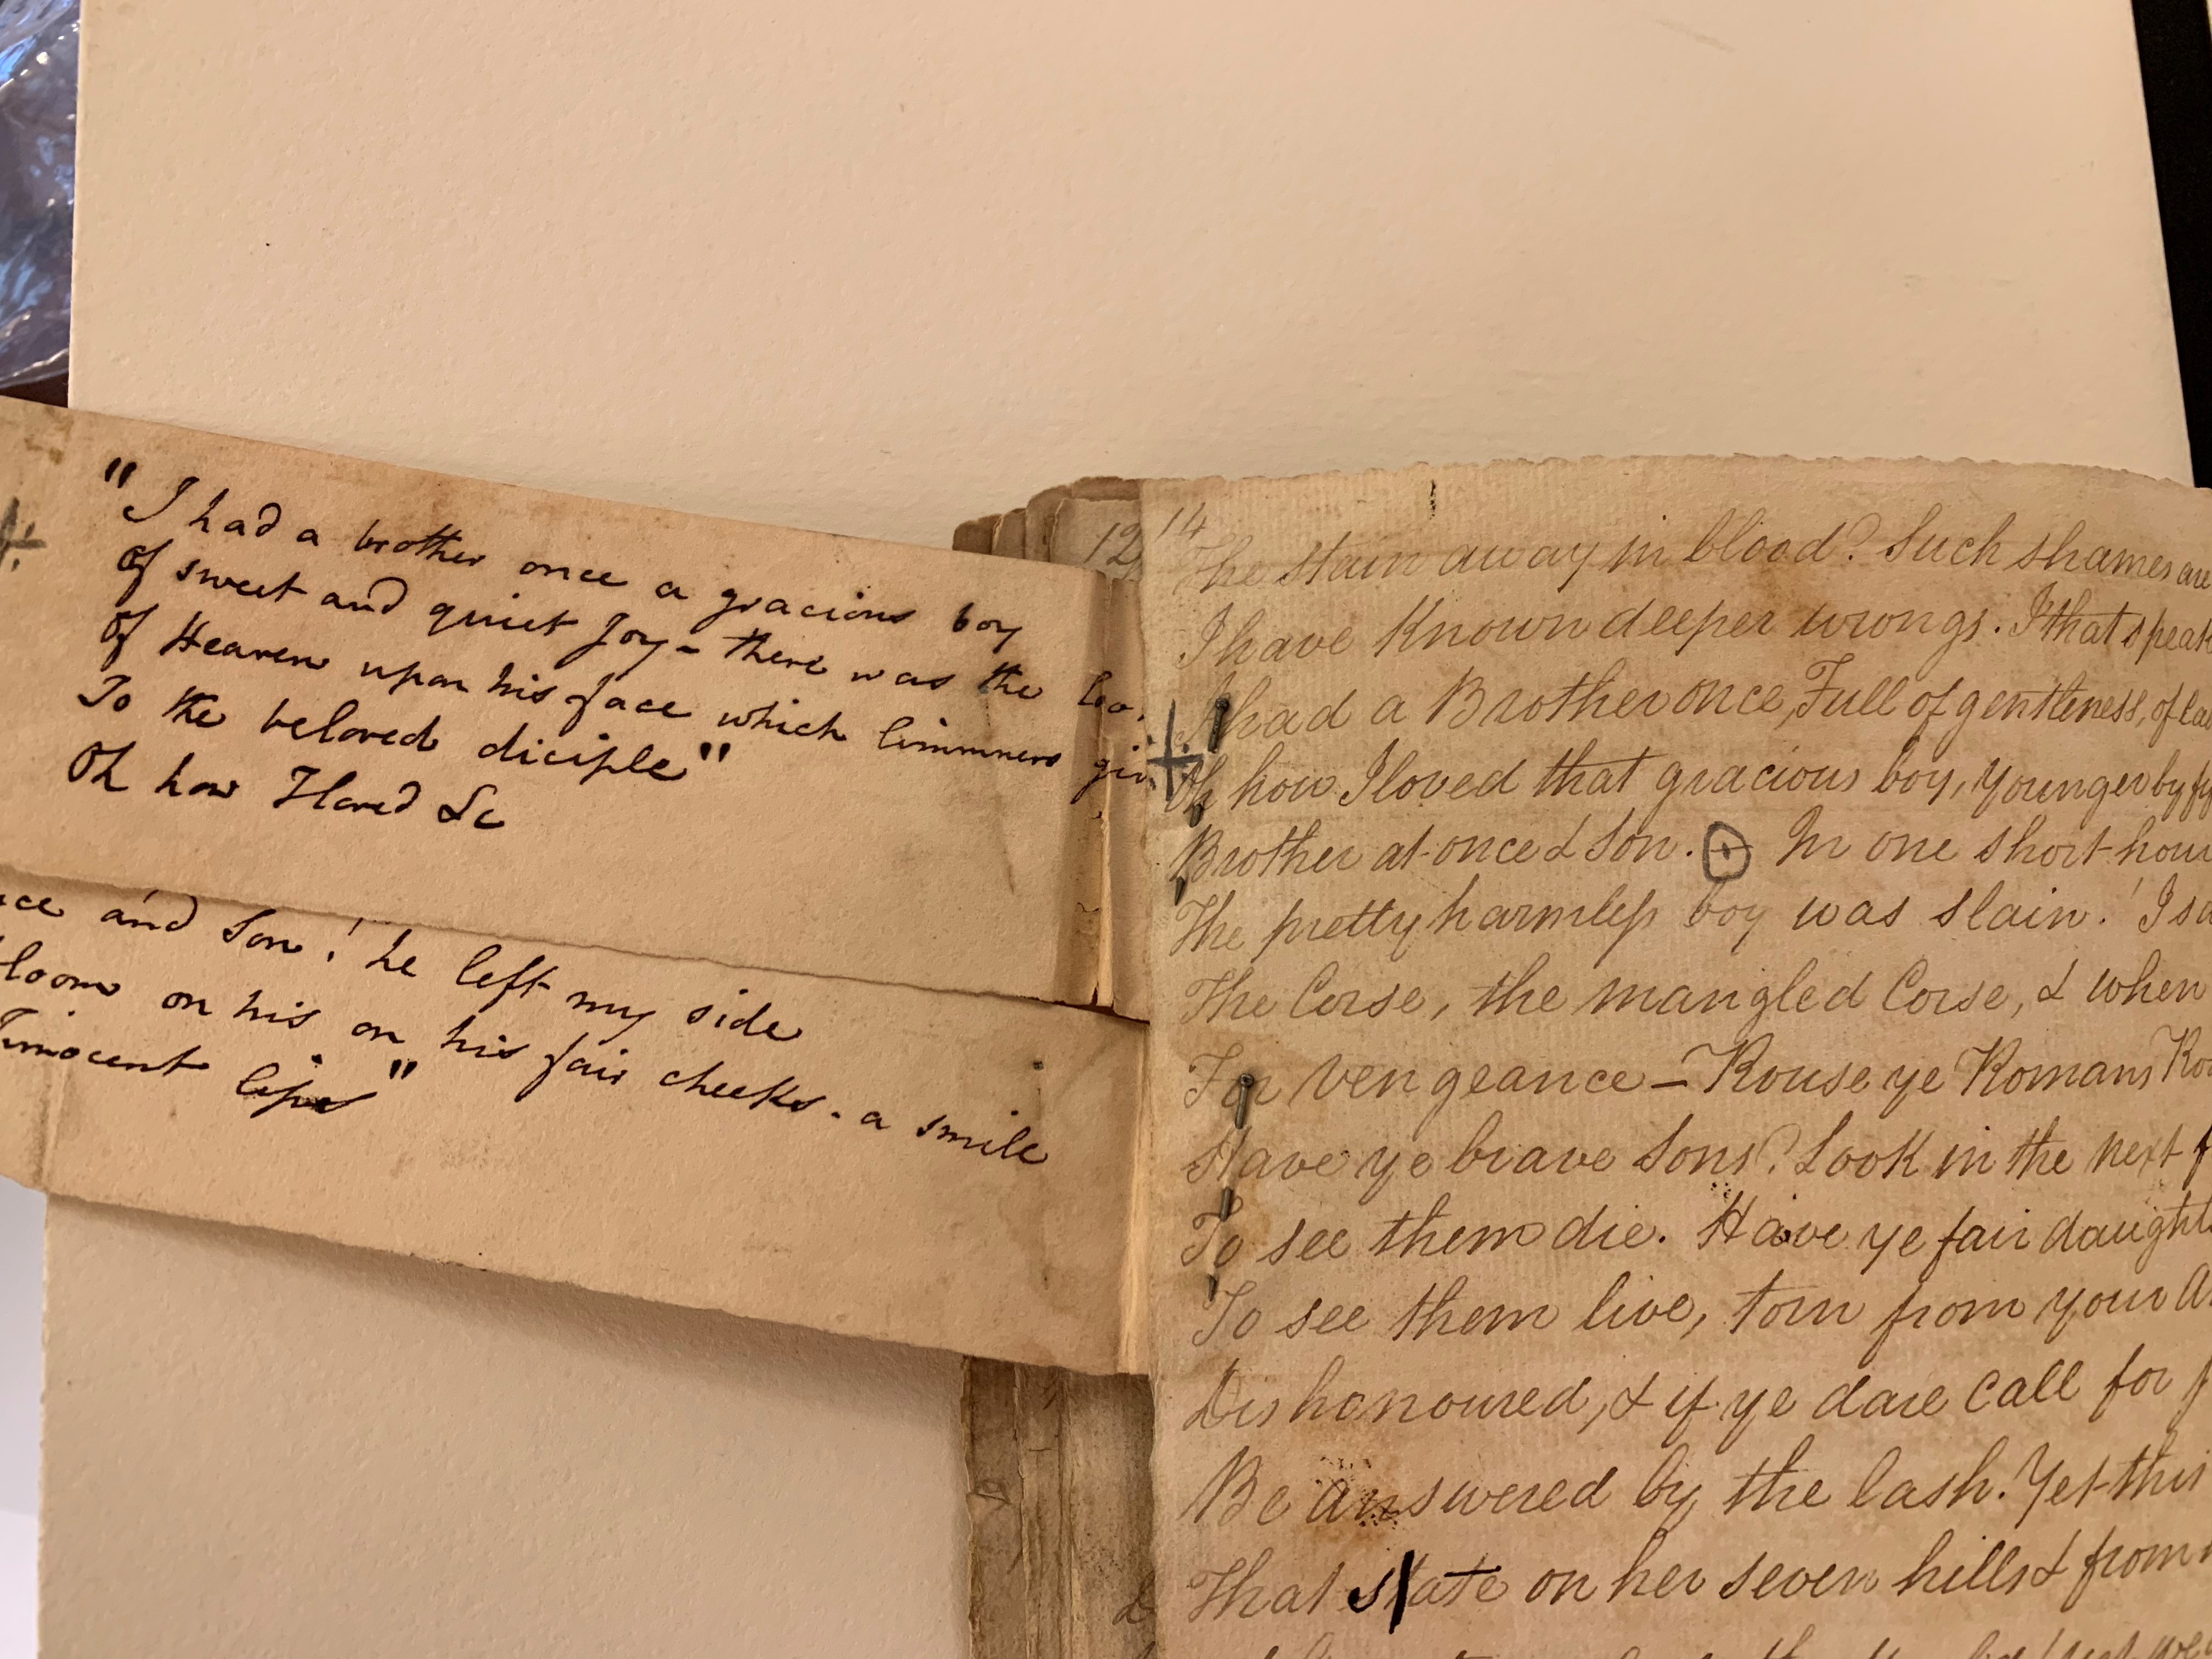 "I had a brother once a gracious boy
Of sweet and quiet Joy - there was the
Of Heaven upon his face which limmners
To the beloved diciple"
Oh how I loved &c
and Son! he left my side
on his on his fair cheeks - a smile
Innocent lips"
12
14
The stain away in blood? Such shames are
I have Known deeper wrongs. I that speak
I had a Brother once, Full of gentleness, of
Oh how I loved that gracious boy, younger by
Brother at once & Son. In one short hour
The pretty harmless boy was slain! I
The Corse, the mangled Corse, & when
For vengeance - Rouse ye Romans
Have ye brave Sons? Look in the next
To see them die. Have ye fair
To see them live, torn from your
Dishonoured, & if ye dare Call for
Be answered by the lash. Yet this
That state on her seven hills & from